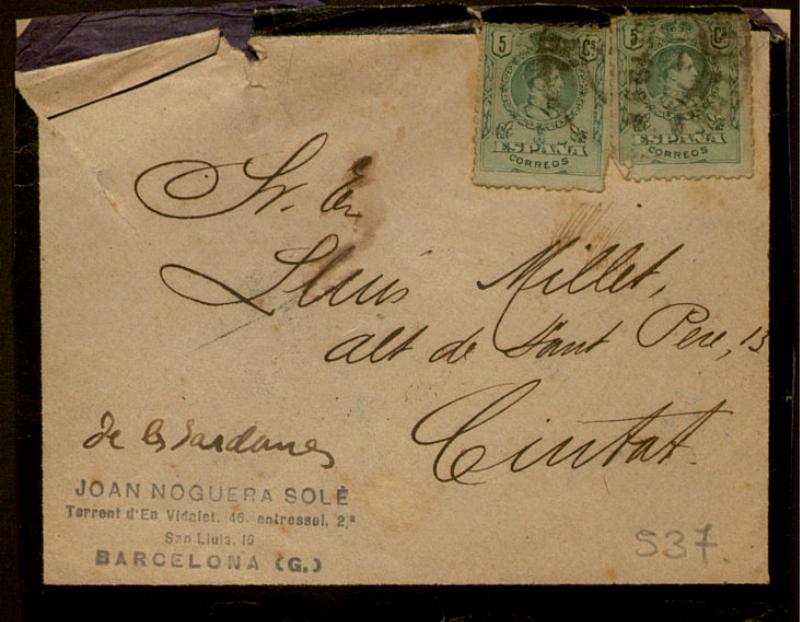 5 Cs
ESPAÑA
CORREOS
5 Cs
ESPAÑA
CORREOS
Sr. En
Lluis Millet,
alt de Sant Pere, 13
Ciutat.
de les sardanes
JOAN NOGUERA SOLÉ
Torrent d'En Vidalet, 46, entressol, 2.ª
San Lluis, 16
BARCELONA (G.)
537